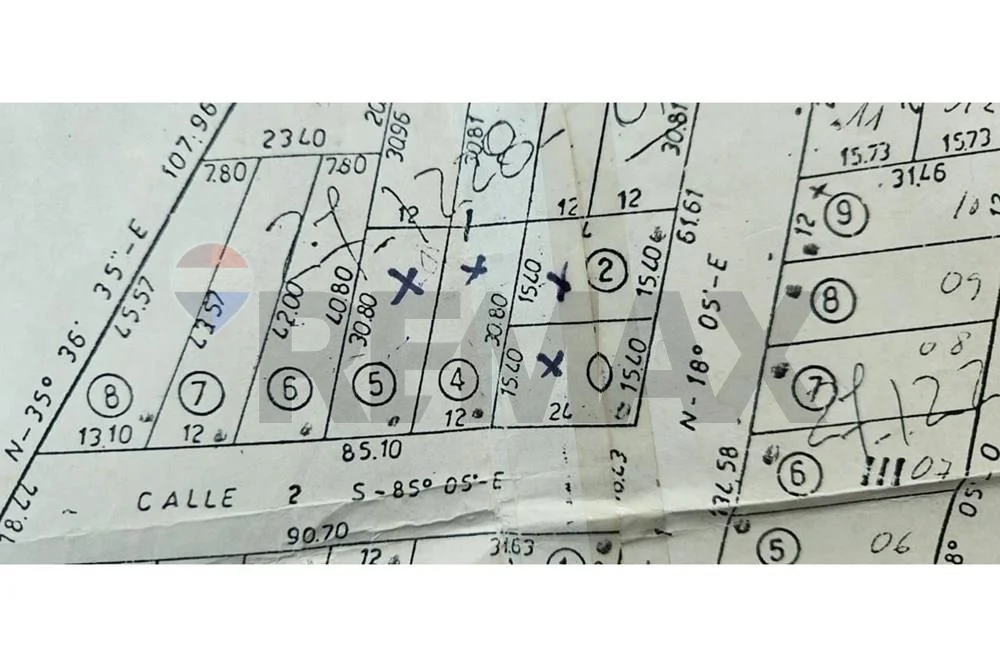 107.96
2340
20
30.96
30.81
30.81
15.73
15.73
31.46
7.80
7.80
12
12
12
61.61
12
9
10
12
N-35° 36' 35"-E
45.57
43.57
42.00
40.80
30.80
30.80
15.40
2
15.40
N-18° 05'-E
8
09
REMAX
7
08
8
7
6
5
4
15.40
15.40
13.10
12
12
24
85.10
6
07
18.44
CALLE 2 S-85° 05'-E
10.43
134.58
05'-0
90.70
12
31.63
5
06
8°